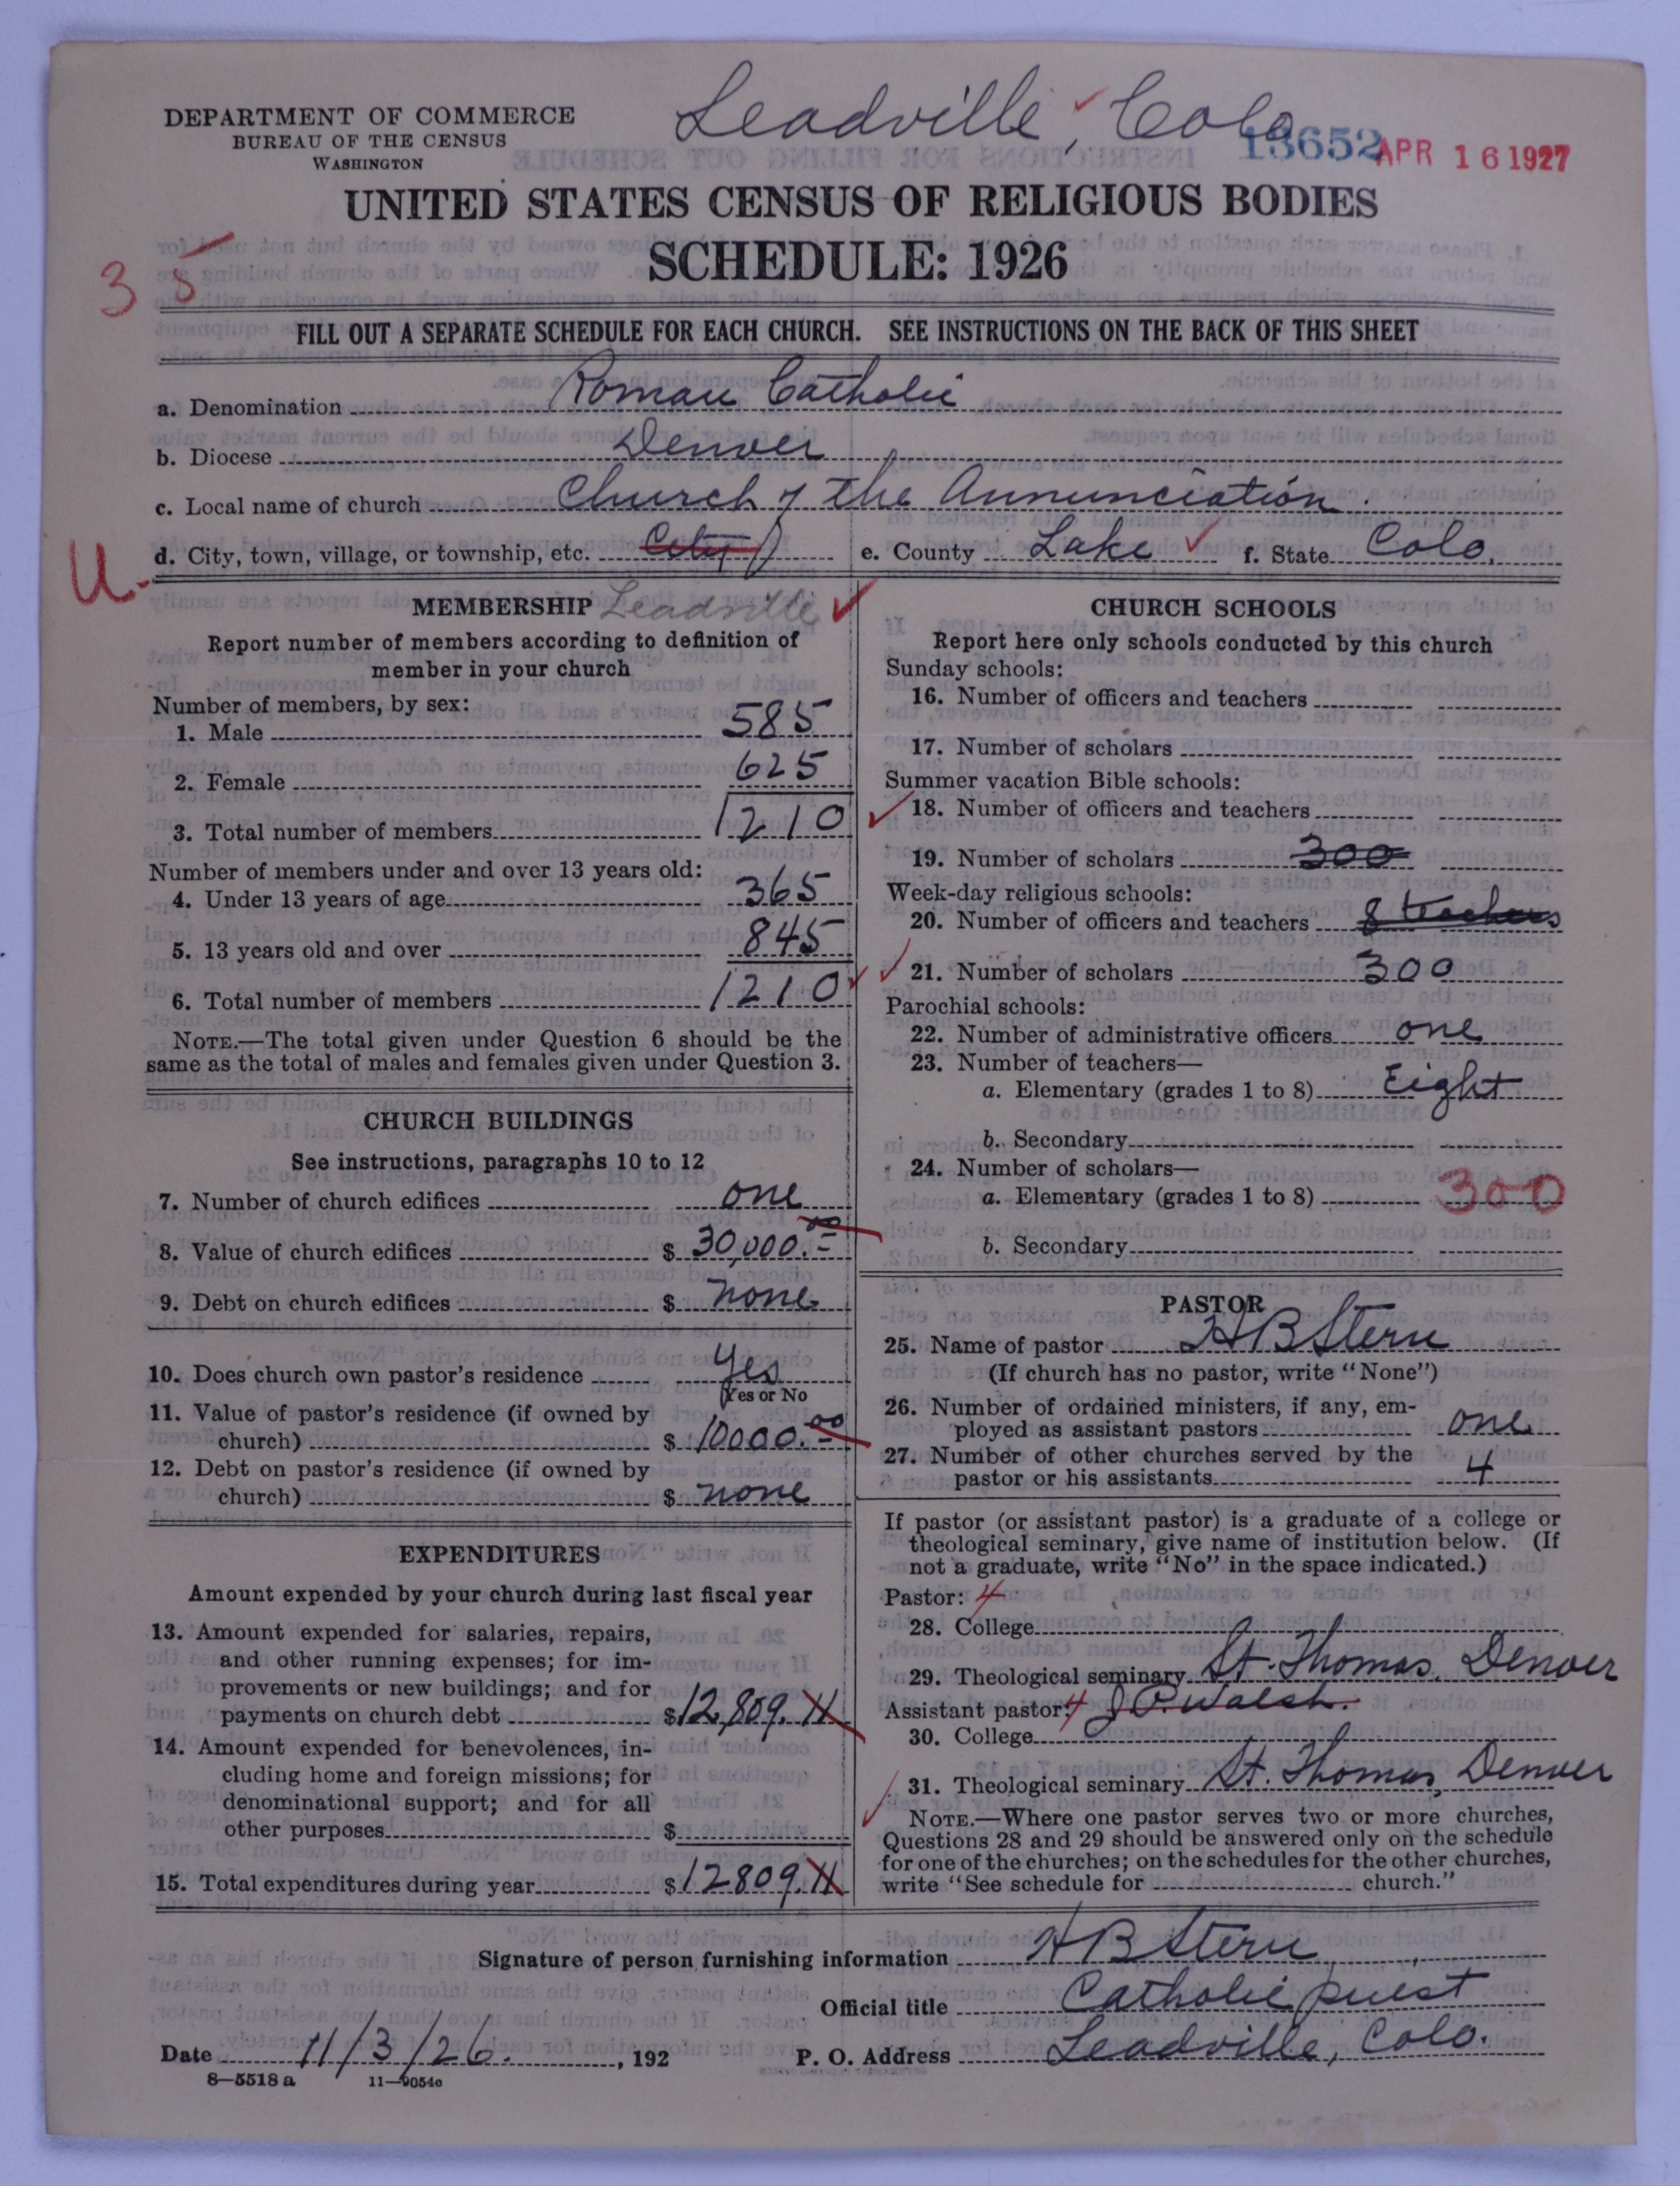 Leadville, Colo
DEPARTMENT OF COMMERCE
BUREAU OF THE CENSUS
WASHINGTON
13652 APR 16 1927
UNITED STATES CENSUS OF RELIGIOUS BODIES
SCHEDULE: 1926
35
FILL OUT A SEPARATE SCHEDULE FOR EACH CHURCH. SEE INSTRUCTIONS ON THE BACK OF THIS SHEET
a. Denomination Roman Catholic
b. Diocese Denver
c. Local name of church Church of the Annunciation.
d. City, town, village, or township, etc. City e. County Lake f. State Colo.
U.
MEMBERSHIP Leadville
Report number of members according to definition of
member in your church
Number of members, by sex:
1. Male 585
2. Female 625
3. Total number of members 1210
Number of members under and over 13 years old:
4. Under 13 years of age 365
5. 13 years old and over 845
6. Total number of members 1210
NOTE.—The total given under Question 6 should be the
same as the total of males and females given under Question 3.
CHURCH BUILDINGS
See instructions, paragraphs 10 to 12
7. Number of church edifices one
8. Value of church edifices $ 30,000.00
9. Debt on church edifices $ none
10. Does church own pastor's residence Yes
Yes or No
11. Value of pastor's residence (if owned by
church) $ 10000.00
12. Debt on pastor's residence (if owned by
church) $ none
EXPENDITURES
Amount expended by your church during last fiscal year
13. Amount expended for salaries, repairs,
and other running expenses; for im-
provements or new buildings; and for
payments on church debt $12,809.11
14. Amount expended for benevolences, in-
cluding home and foreign missions; for
denominational support; and for all
other purposes $
15. Total expenditures during year $12809.11
CHURCH SCHOOLS
Report here only schools conducted by this church
Sunday schools:
16. Number of officers and teachers
17. Number of scholars
Summer vacation Bible schools:
18. Number of officers and teachers
19. Number of scholars 300
Week-day religious schools:
20. Number of officers and teachers 8 teachers
21. Number of scholars 300
Parochial schools:
22. Number of administrative officers one
23. Number of teachers—
a. Elementary (grades 1 to 8) Eight
b. Secondary
24. Number of scholars—
a. Elementary (grades 1 to 8) 300
b. Secondary
PASTOR
25. Name of pastor H B Stern
(If church has no pastor, write "None")
26. Number of ordained ministers, if any, em-
ployed as assistant pastors one
27. Number of other churches served by the
pastor or his assistants 4
If pastor (or assistant pastor) is a graduate of a college or
theological seminary, give name of institution below. (If
not a graduate, write "No" in the space indicated.)
Pastor: 4
28. College
29. Theological seminary St. Thomas, Denver
Assistant pastor: 4 J P. Walsh.
30. College
31. Theological seminary St. Thomas, Denver
NOTE.—Where one pastor serves two or more churches,
Questions 28 and 29 should be answered only on the schedule
for one of the churches; on the schedules for the other churches,
write "See schedule for church."
Signature of person furnishing information H B Stern
Official title Catholic priest
Date 11/3/26. , 192 P. O. Address Leadville, Colo.
8—5518 a 11—9054c